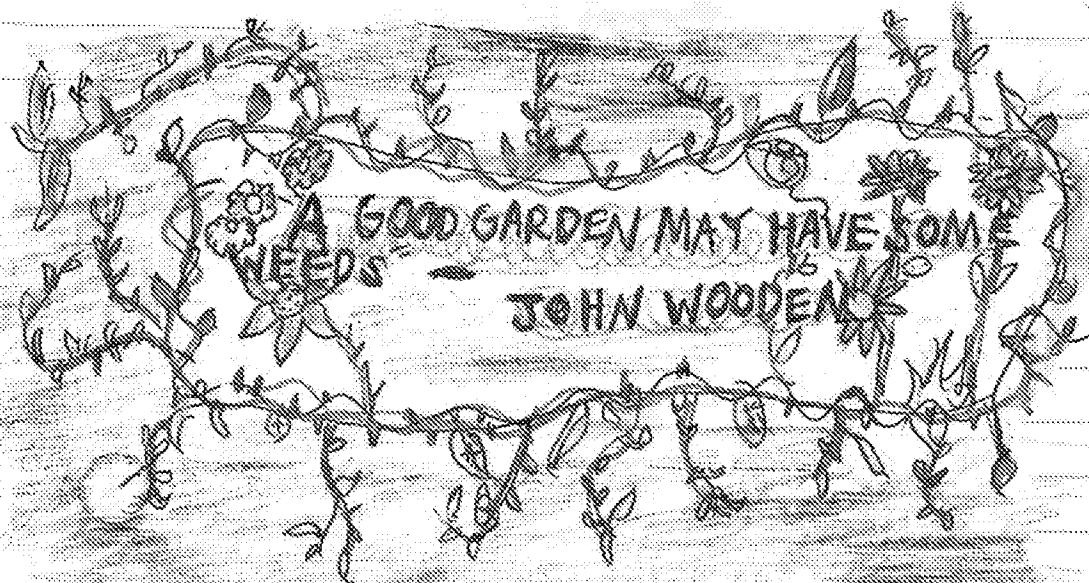 A GOOD GARDEN MAY HAVE SOME
NEEDS -
JOHN WOODEN